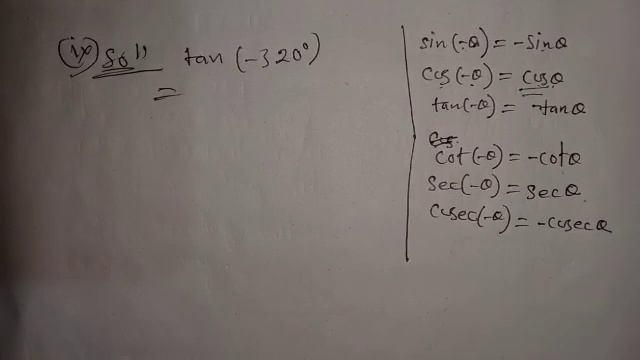 (ix) Solⁿ tan (-320°)
=
sin(-θ) = -sinθ
cos(-θ) = cosθ
tan(-θ) = -tanθ
cot(-θ) = -cotθ
sec(-θ) = secθ
cosec(-θ) = -cosecθ